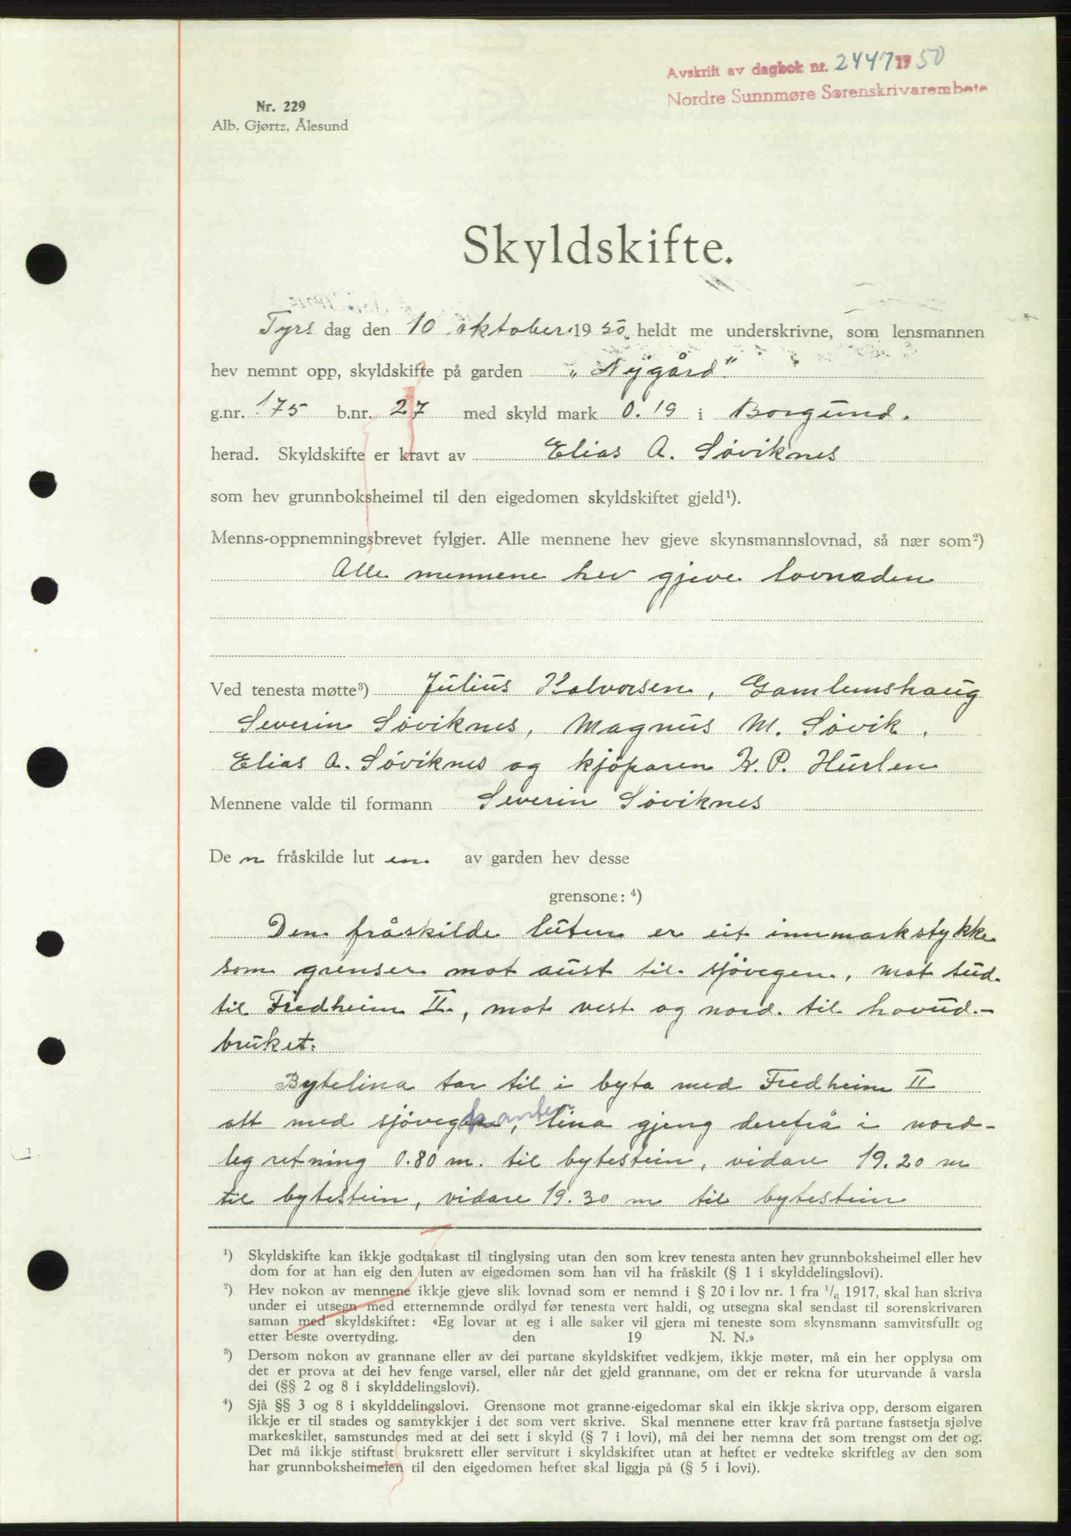 Avskrift av dagbok nr. 2447 1950
Nordre Sunnmøre Sorenskrivarembete
Nr. 229
Alb. Gjørtz, Ålesund
Skyldskifte.
Tyrsdag den 10 oktober 1950 heldt me underskrivne, som lensmannen
hev nemnt opp, skyldskifte på garden „Nygård"
g.nr. 175 b.nr. 27 med skyld mark 0.19 i Borgund.
herad. Skyldskifte er kravt av Elias A. Søviknes
som hev grunnboksheimel til den eigedomen skyldskiftet gjeld¹).
Menns-oppnemningsbrevet fylgjer. Alle mennene hev gjeve skynsmannslovnad, så nær som²)
Alle mennene hev gjeve lovnaden
Ved tenesta møtte³) Julius Halvorsen, Gamlemshaug
Severin Søviknes, Magnus M. Søvik,
Elias A. Søviknes og kjøparen K. P. Hurlen
Mennene valde til formann Severin Søviknes
De n fråskilde lut en av garden hev desse
grensone: ⁴)
Den fråskilde luten er eit innmarkstykke
som grenser mot aust til sjøvegen, mot sud
til Fredheim II, mot vest og nord til hovud-
bruket.
Bytelina tar til i byta med Fredheim II
att med sjøvegkanten, lina gjeng derefrå i nord-
leg retning 0.80 m. til bytestein, vidare 19.20 m
til bytestein, vidare 19.30 m til bytestein
¹) Skyldskifte kan ikkje godtakast til tinglysing utan den som krev tenesta anten hev grunnboksheimel eller hev
dom for at han eig den luten av eigedomen som han vil ha fråskilt (§ 1 i skylddelingslovi).
²) Hev nokon av mennene ikkje gjeve slik lovnad som er nemnd i § 20 i lov nr. 1 fra ¹/₆ 1917, skal han skriva
under ei utsegn med etternemnde ordlyd før tenesta vert haldi, og utsegna skal sendast til sorenskrivaren
saman med skyldskiftet: «Eg lovar at eg i alle saker vil gjera mi teneste som skynsmann samvitsfullt og
etter beste overtyding. den 19 N. N.»
³) Dersom nokon av grannane eller av dei partane skyldskiftet vedkjem, ikkje møter, må ein her opplysa om
det er prova at dei hev fenge varsel, eller når det gjeld grannane, om det er rekna for uturvande å varsla
dei (§§ 2 og 8 i skylddelingslovi).
⁴) Sjå §§ 3 og 8 i skylddelingslovi. Grensone mot granne-eigedomar skal ein ikkje skriva opp, dersom eigaren
ikkje er til stades og samtykkjer i det som vert skrive. Skal mennene etter krav frå partane fastsetja sjølve
markeskilet, samstundes med at dei sett i skyld (§ 7 i lovi), må dei her nemna det som trengst om det og.
Det må ikkje stiftast bruksrett eller servitutt i skyldskiftet utan at heftet er vedteke skriftleg av den som
har grunnboksheimelen til den eigedomen heftet skal liggja på (§ 5 i lovi).